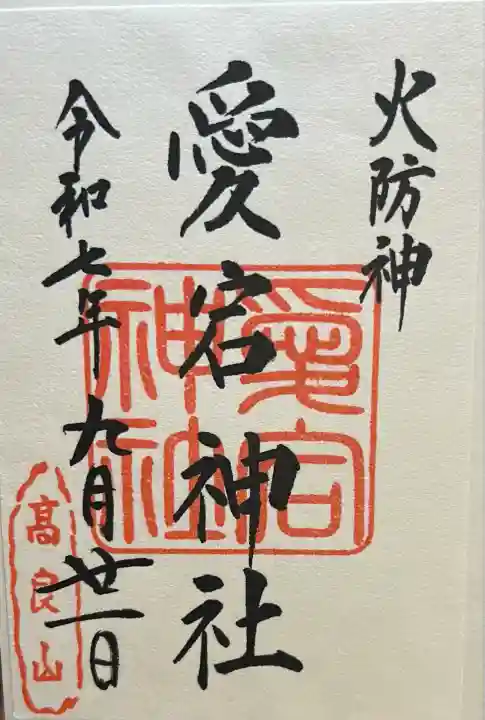 火防神
愛宕神社
愛宕
神社
令和七年九月廿一日
高良山